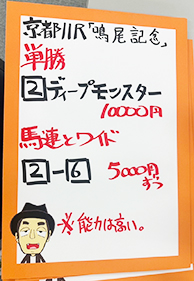 京都11R「鳴尾記念」
単勝
2ディープモンスター
10000円
馬連とワイド
2-6 5000円
ずつ
※能力は高い。